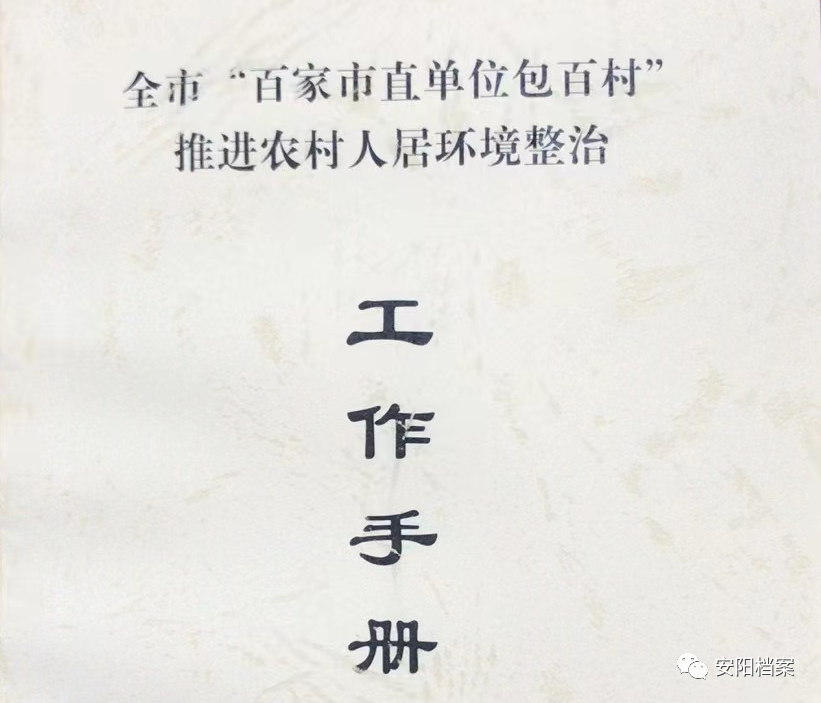 全市“百家市直单位包百村”
推进农村人居环境整治
工作手册
安阳档案